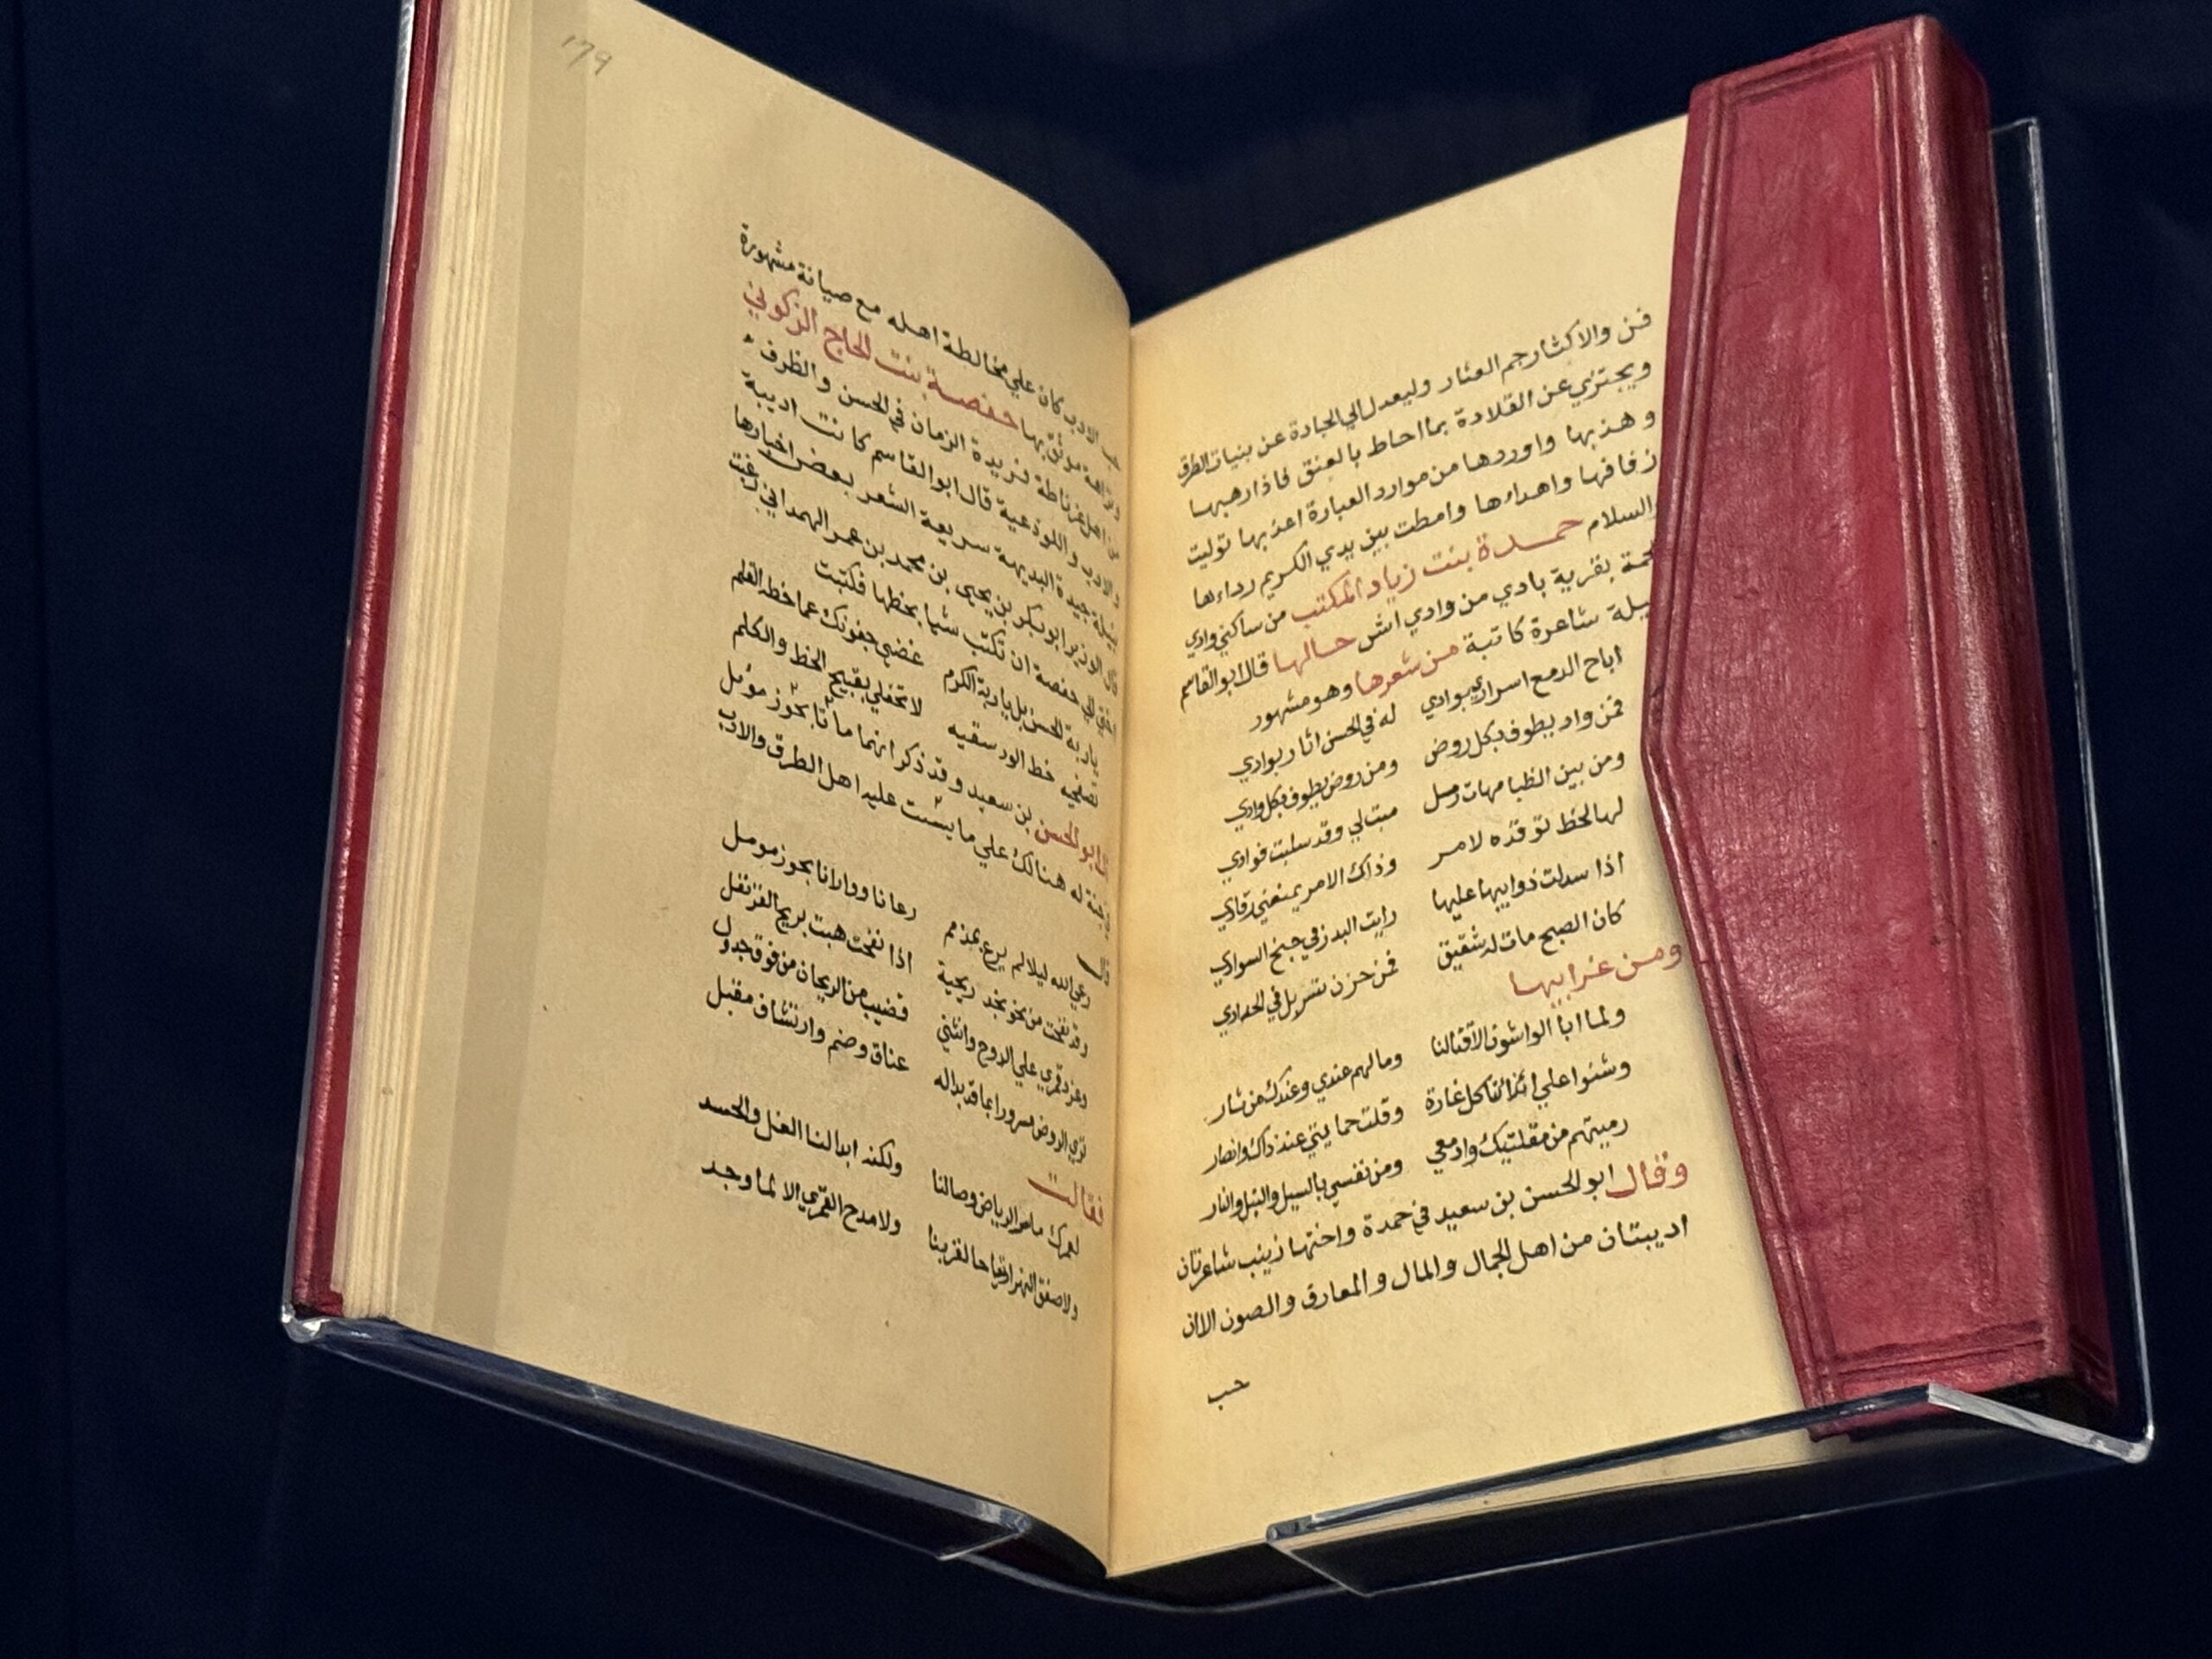 فن والاكثار جم العثار وليعدل الي الجادة عن بنيات الطرق
ويجتزي عن القلادة بما احاط بالعنق فاذا رهبها
وهذبها واوردها من موارد العبارة اعذبها توليت
زفافها واهداءها وامطت بين يدي الكريم رداءها
والسلام حمدة بنت زياد المكتب من ساكني وادي
بقرية بادي من وادي اش حالها قال ابو القاسم
شاعرة كاتبة من شعرها وهو مشهور
اباح الدمع اسراري بوادي له في الحسن اثار بوادي
فمن واد يطوف بكل روض ومن روض يطوف بكل وادي
ومن بين الظبا مهات رمل سبت لي وقد سلبت فوادي
لها لحظ توقده لامر وذاك الامر يمنعني رقادي
اذا سدلت ذوايبها عليها رايت البدر في جنح السوادي
كان الصبح مات له شقيق فمن حزن تسربل في الحدادي
ومن غرايبها
ولما ابا الواشون الا قتالنا وما لهم عندي وعندك من ثار
وشنوا علي اذاننا كل غارة وقلت حمايتي عند ذاك وانصار
رميتهم من مقلتيك وادمعي ومن نفسي بالسيل والنبل والنار
وقال ابو الحسن بن سعيد في حمدة واختها زينب شاعرتان
اديبتان من اهل الجمال والمال والمعارف والصون الا ان
حب
١٧٩
حب الادب كان علي مخالطة اهله مع صيانة مشهورة
ونزاهة موثق بها حفصة بنت الحاج الركوني
من اهل غرناطة فريدة الزمان في الحسن والظرف
والادب واللوذعية قال ابو القاسم كانت اديبة
نبيلة جيدة البديهة سريعة الشعر بعض اخبارها
قال الوزير ابو بكر بن يحيي بن محمد بن عمر الهمداني رغبت
اختي الي حفصة ان تكتب شيا بخطها فكتبت
يا ربة الحسن بل يا ربة الكرم غضي جفونك عما خطه القلم
تصفحيه بخط الود سقيه لا تحفلي بقبيح الخط والكلم
ابو الحسن بن سعيد وقد ذكر انهما باتا بحوز مومل
جنة له هنالك علي ما يبيت عليه اهل الظرف والادب
قال
رعي الله ليلا لم يرع بمذمم رعانا ووارانا بحوز مومل
وقد نفحت من نحو نجد ريحية اذا نفحت هبت بريح القرنفل
وغرد قمري علي الدوح وانثني قضيب من الريحان من فوق جدول
تري الروض مسرورا بما قد بدا له عناق وضم وارتشاف مقبل
فقالت
لعمرك ما سر الرياض وصالنا ولكنه ابدا لنا الغل والحسد
ولا صفق النهر ارتياحا لقربنا ولا صدح القمري الا لما وجد